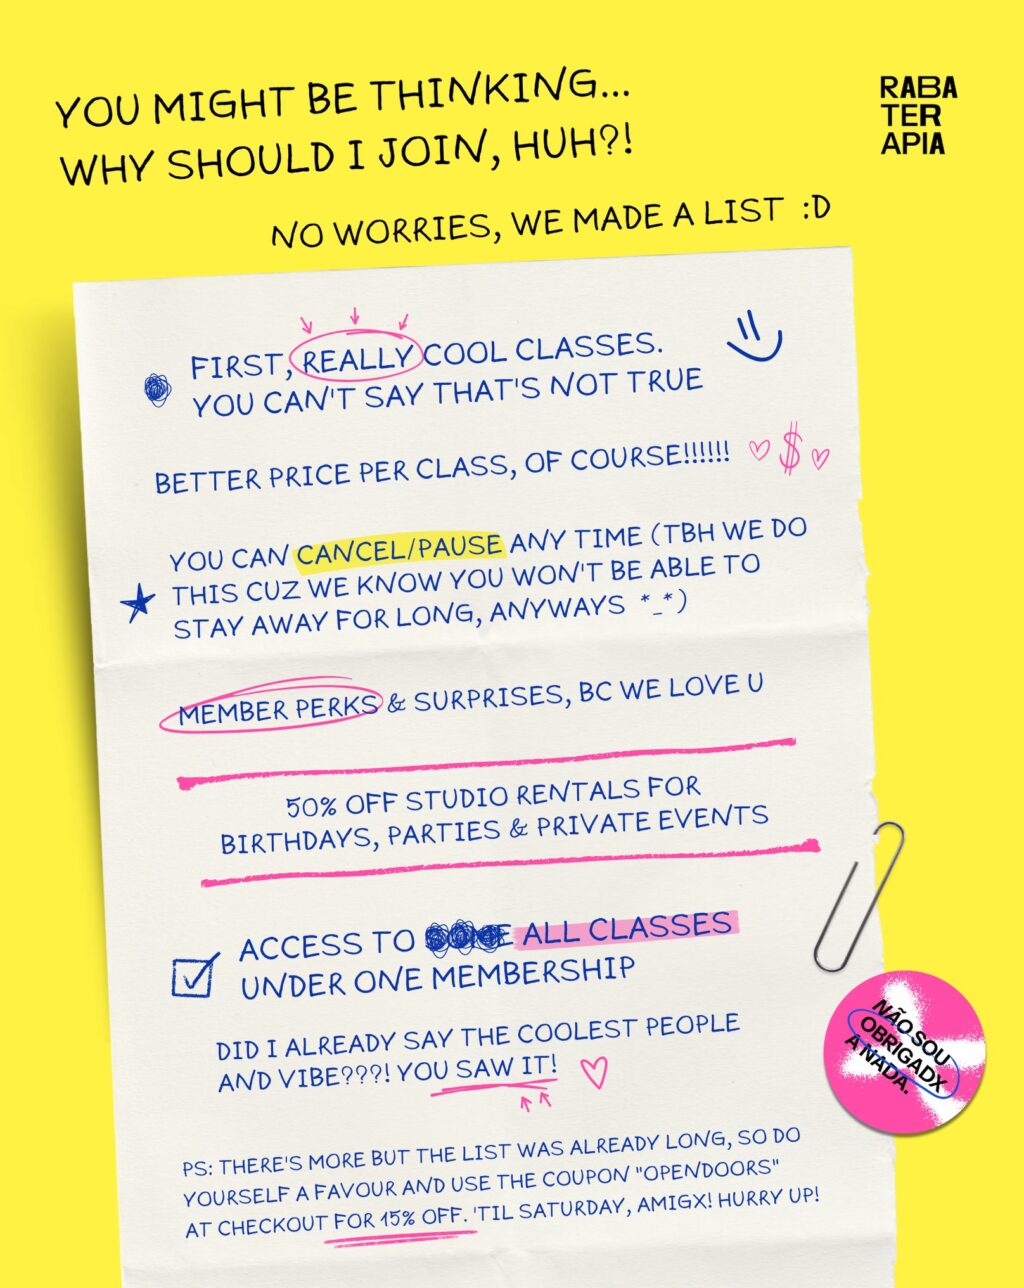 YOU MIGHT BE THINKING...
WHY SHOULD I JOIN, HUH?!
RABA
TER
APIA
NO WORRIES, WE MADE A LIST :D
FIRST, REALLY COOL CLASSES.
YOU CAN'T SAY THAT'S NOT TRUE
BETTER PRICE PER CLASS, OF COURSE!!!!!! $
YOU CAN CANCEL/PAUSE ANY TIME (TBH WE DO
THIS CUZ WE KNOW YOU WON'T BE ABLE TO
STAY AWAY FOR LONG, ANYWAYS *_*)
MEMBER PERKS & SURPRISES, BC WE LOVE U
50% OFF STUDIO RENTALS FOR
BIRTHDAYS, PARTIES & PRIVATE EVENTS
ACCESS TO SOME ALL CLASSES
UNDER ONE MEMBERSHIP
DID I ALREADY SAY THE COOLEST PEOPLE
AND VIBE???! YOU SAW IT!
NÃO SOU
OBRIGADX
A NADA.
PS: THERE'S MORE BUT THE LIST WAS ALREADY LONG, SO DO
YOURSELF A FAVOUR AND USE THE COUPON "OPENDOORS"
AT CHECKOUT FOR 15% OFF. 'TIL SATURDAY, AMIGX! HURRY UP!